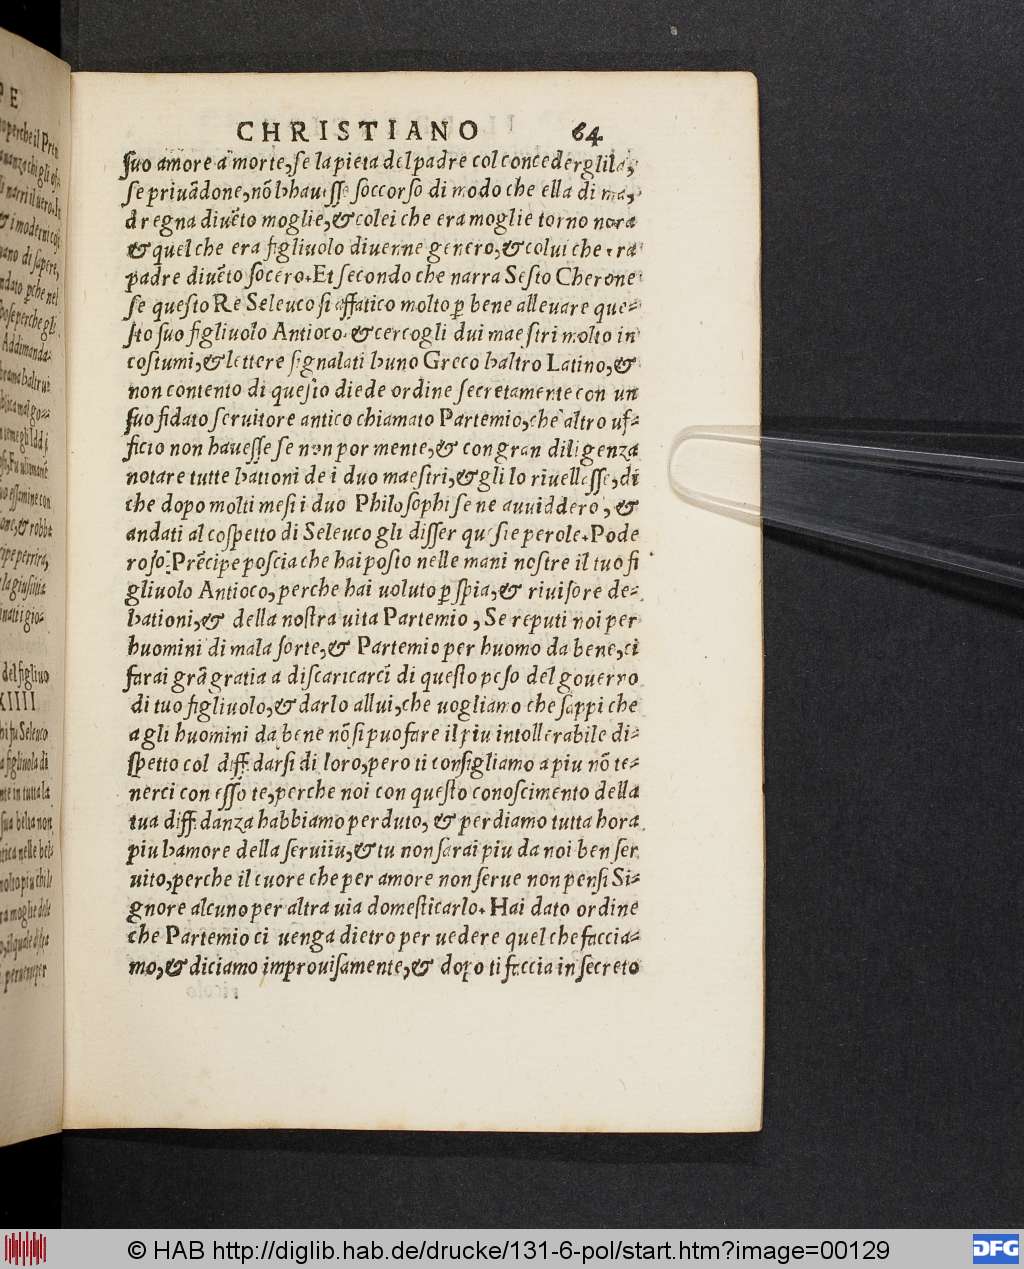 CHRISTIANO 64
suo amore a morte, se la pieta del padre col concederglila,
se privãdone, nõ lhavesse soccorso di modo che ella di ma,
dregna divẽto moglie, & colei che era moglie torno nora
& quel che era figliuolo divenne genero, & colui che era
padre divẽto socero. Et secondo che narra Sesto Cherone
se questo Re Seleuco si affatico molto ꝑ bene allevare que-
sto suo figliuolo Antioco, & cercogli dui maestri molto in
costumi, & lettere signalati huno Greco haltro Latino, &
non contento di questo diede ordine secretamente con un
suo fidato servitore antico chiamato Partemio, che altro uf-
ficio non havesse se non por mente, & con gran diligenza
notare tutte hationi de i duo maestri, & gli lo rivellasse, di
che dopo molti mesi i duo Philosophi se ne avviddero, &
andati al cospetto di Seleuco gli disser queste perole. Pode
roso Prẽcipe poscia che hai posto nelle mani nostre il tuo fi
gliuolo Antioco, perche hai uoluto ꝑ spia, & rivisore de-
hationi, & della nostra vita Partemio, Se reputi noi per
huomini di mala sorte, & Partemio per huomo da bene, ci
farai grã gratia a discaricarci di questo peso del governo
di tuo figliuolo, & darlo allui, che uogliamo che sappi che
a gli huomini da bene nõ si puo fare il piu intollerabile di-
spetto col diffidarsi di loro, pero ti consigliamo a piu nõ te-
nerci con esso te, perche noi con questo conoscimento della
tua diffidanza habbiamo perduto, & perdiamo tutta hora
piu hamore della serviiu, & tu non sarai piu da noi ben ser
vito, perche il cuore che per amore non serve non pensi Si-
gnore alcuno per altra uia domesticarlo. Hai dato ordine
che Partemio ci uenga dietro per uedere quel che faccia-
mo, & diciamo improvisamente, & dopo ti faccia in secreto
© HAB http://diglib.hab.de/drucke/131-6-pol/start.htm?image=00129
DFG